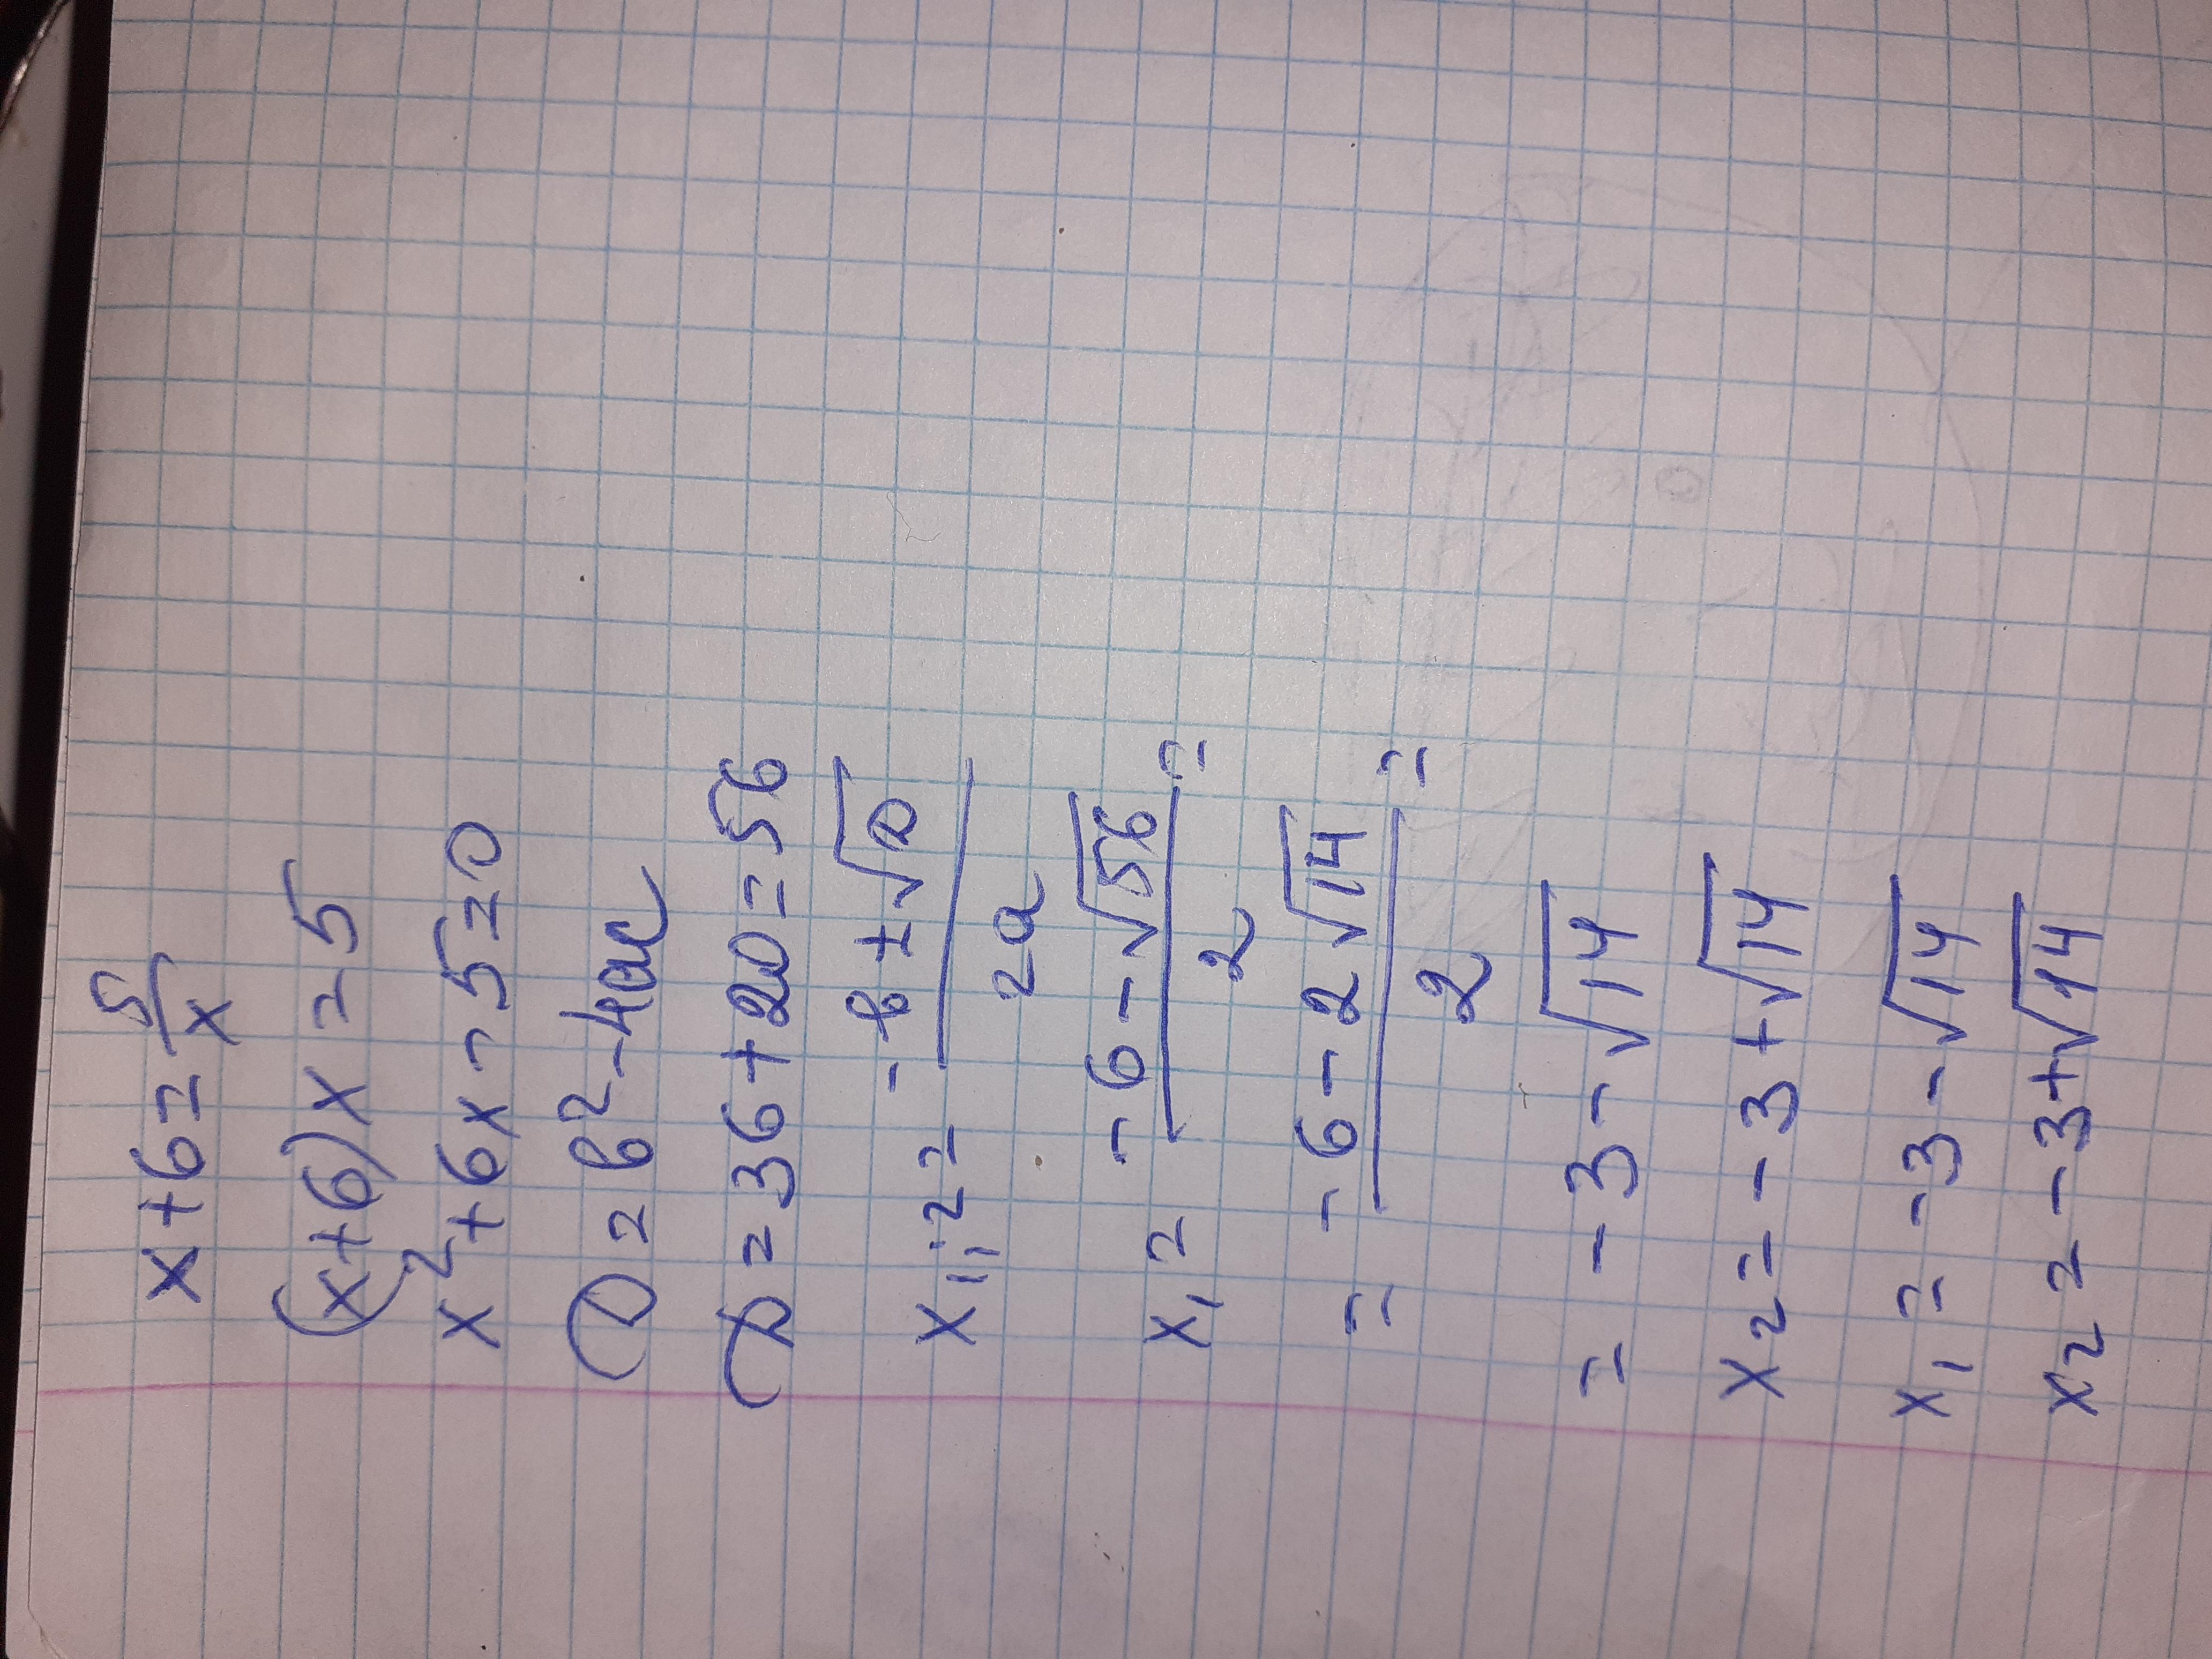 x + 6 = 5/x
(x+6)x = 5
x² + 6x - 5 = 0
D = b² - 4ac
D = 36 + 20 = 56
x₁;₂ = (-b ± √D)/2a
x₁ = (-6 - √56)/2 =
= (-6 - 2√14)/2 =
= -3 - √14
x₂ = -3 + √14
x₁ = -3 - √14
x₂ = -3 + √14